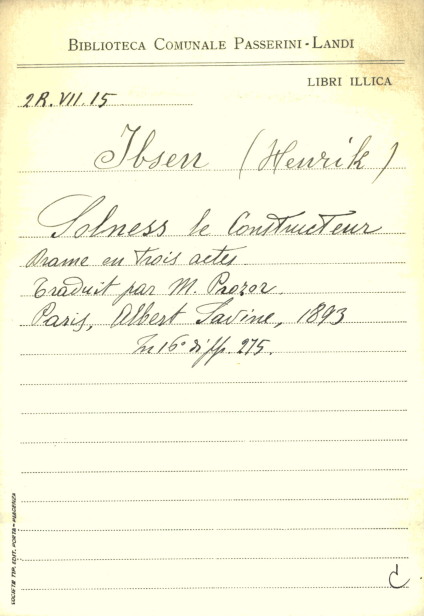 BIBLIOTECA COMUNALE PASSERINI-LANDI
LIBRI ILLICA
2R.VII.15
Ibsen (Henrik)
Solness le Constructeur
Drame en trois actes.
Traduit par M. Prozor.
Paris, Albert Savine, 1893
In 16° di pp. 275.
C
SOCIETÀ TIP. EDIT. PORTA - PIACENZA